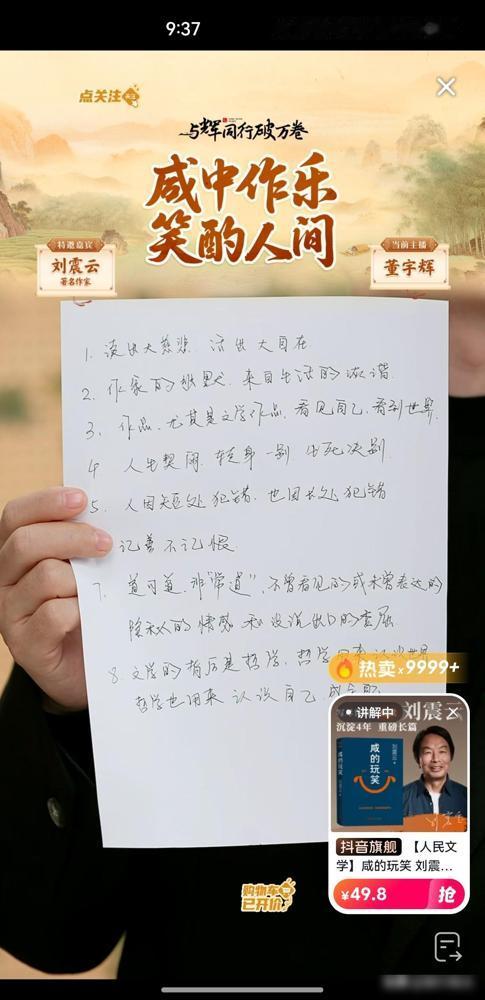 9:37
点关注
关注
与辉同行破万卷
咸中作乐
笑酌人间
特邀嘉宾
刘震云
著名作家
当前主播
董宇辉
1. 读出大慈悲 活出大自在
2. 作家的幽默 来自生活的诙谐
3. 作品、尤其是文学作品、看见自己、看到世界
4 人生契阔 转身一别 生死决别
5. 人因短处犯错、也因长处犯错
记善不记恨
7. 道可道，非“常道”，不曾看见的或未曾表达的
隐秘的情感 和没说出口的委屈
8. 文学的背后是哲学、哲学用来认识世界
哲学也用来认识自己
热卖x9999+
讲解中
刘震云
沉淀4年 重磅长篇
刘震云
咸的玩笑
抖音旗舰 【人民文
学】咸的玩笑 刘震...
¥49.8 抢
购物车
已开价